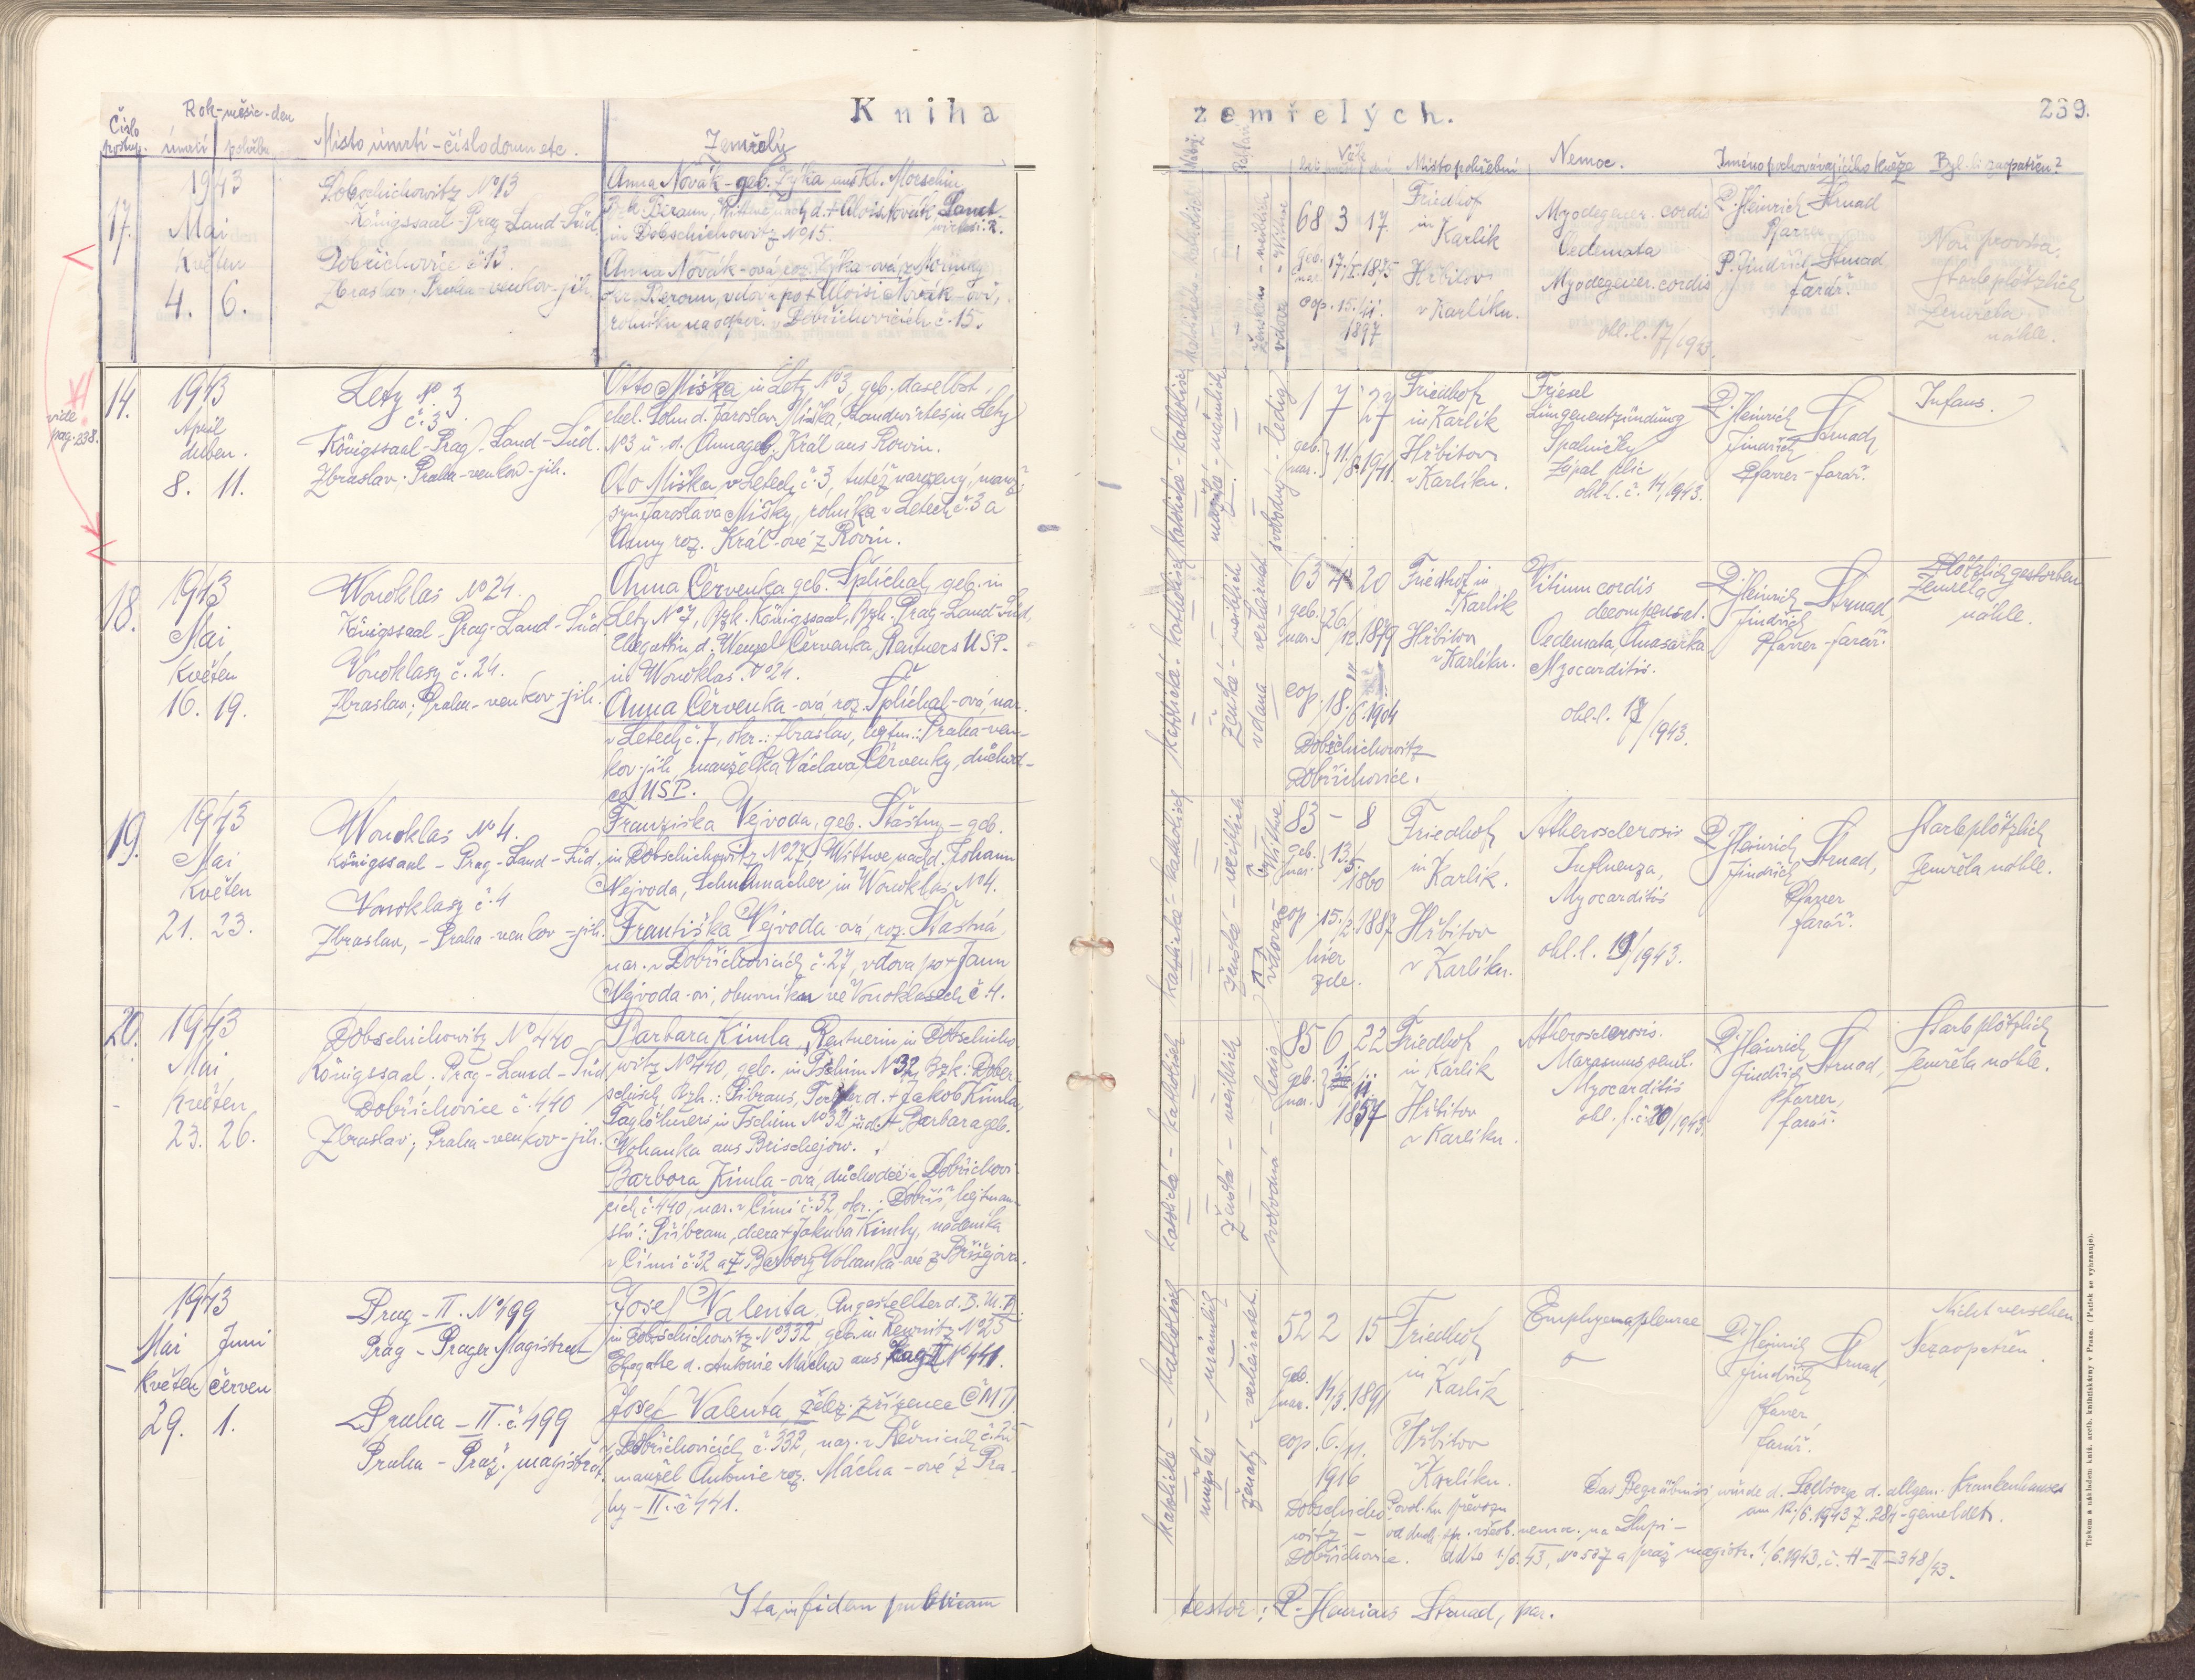 Kniha zemřelých. 239.
Číslo postup. Rok-měsíc-den
úmrtí pohřbu Místo úmrtí - číslo domu etc. Zemřelý
Věk
Místo pohřební Nemoc. Jméno pochovávajícího kněze Byl-li zaopatřen?
17.
1943
Mai
květen
4. 6.
Dobschichowitz No 13
Königssaal Prag-Land-Süd
Dobřichovice č. 13.
Zbraslav; Praha-venkov-jih.
Anna Novák - geb. Zyka, aus Kl. Morschin,
Bzk Beraun, Wittwe nach d. + Alois Novák, Landwirtes i. R.
in Dobschichowitz No 15.
Anna Novák-ová, roz. Zyka-ová, z Mořinky
okr. Beroun, vdova po + Aloisi Novák-ovi,
rolníku na odpoč. v Dobřichovicích č. 15.
ženská - weiblich
vdova - Witwe
68 3 17.
geb. nar. 17/I. 1875
cop. 15./II.
1897
Friedhof
in
Karlík
Hřbitov
v Karlíku.
Myodegener. cordis
Oedemata
Myodegener. cordis
ohl. l. 17/1943.
P. Heinrich Strnad
Pfarrer
P. Jindřich Strnad
farář.
Non provisa.
Starb plötzlich
Zemřela
náhle.
vide
pag. 238.
14.
1943
April
duben.
8. 11.
Lety No 3
č. 3
Königssaal-Prag-Land-Süd.
Zbraslav; Praha-venkov-jih.
Otto Miška, in Lety No 3, geb. daselbst,
ehel. Sohn d. Jaroslav Miška, Landwirtes in Lety
No 3 u. d. Anna geb. Král aus Rowin.
Oto Miška, v Letech č. 3, tutéž narozený, manž.
syn Jaroslava Mišky, rolníka v Letech č. 3 a
Anny roz. Král-ové z Rovin.
katolické - katholisch
mužské - männlich
svobodný - ledig
1 7 27
geb. nar. 11./8. 1941.
Friedhof
in Karlík
Hřbitov
v Karlíku.
Friesel
Lungenentzündung
Spalničky
Zápal plic
ohl. l. č. 14/1943.
P. Heinrich
Jindřich Strnad,
Pfarrer - farář.
Infans.
18.
1943
Mai
květen
16. 19.
Wonoklas No 24.
Königssaal-Prag-Land-Süd
Vonoklasy č. 24.
Zbraslav; Praha-venkov-jih.
Anna Červenka geb. Šplíchal, geb. in
Lety No 7, Bzk. Königssaal, Bzh. Prag-Land-Süd,
Ehegattin d. Wenzel Červenka, Rentners USP.
in Wonoklas No 24.
Anna Červenka-ová, roz. Šplíchal-ová, nar.
v Letech č. 7, okr.: Zbraslav, hejtm.: Praha-ven-
kov-jih, manželka Václava Červenky, důchod-
ce USP.
katolická - katholisch
ženská - weiblich
vdaná - verheiratet
63 4 20
geb. nar. 26/12. 1879
cop. 18./6. 1904
Dobschichowitz
Dobřichovice.
Friedhof in
Karlík
Hřbitov
v Karlíku.
Vitium cordis
decompensat.
Oedemata, Anasarka
Myocarditis.
ohl. l. 18/1943.
P. Heinrich
Jindřich Strnad,
Pfarrer - farář.
Plötzlich gestorben
Zemřela
náhle.
19.
1943
Mai
květen
21. 23.
Wonoklas No 4.
Königssaal - Prag-Land-Süd,
Vonoklasy č. 4
Zbraslav, - Praha-venkov-jih.
Franziska Vejvoda, geb. Šťastny - geb.
in Dobschichowitz No 27, Wittwe nach d. Johann
Vejvoda, Schuhmacher in Wonoklas No 4.
Františka Vejvoda-ová, roz. Šťastná,
nar. v Dobřichovicích č. 27, vdova po + Janu
Vejvoda-ovi, obuvníku ve Vonoklasech č. 4.
katolická - katholisch
ženská - weiblich
vdova - Wittwe
83 - 8
geb. nar. 13./5. 1860
cop. 15./2. 1887
hier
zde.
Friedhof
in Karlík.
Hřbitov
v Karlíku.
Atherosclerosis
Influenza,
Myocarditis
ohl. l. 19/1943.
P. Heinrich
Jindřich Strnad,
Pfarrer
farář.
Starb plötzlich
Zemřela náhle.
20.
1943
Mai
květen
23. 26.
Dobschichowitz No 440
Königssaal. Prag-Land-Süd
Dobřichovice č. 440
Zbraslav; Praha-venkov-jih.
Barbara Kimla, Rentnerin in Dobschicho-
witz No 440, geb. in Tschim No 32, Bzk: Dober-
schisch, Bzh.: Pibrans, Tochter d. + Jakob Kimla,
Taglöhners in Tschim No 32 u. d. + Barbara geb.
Vohanka aus Brischejow.
Barbora Kimla-ová, důchodce v Dobřichovi-
cích č. 440, nar. v Čími č. 32, okr.: Dobříš, hejtman-
ství: Příbram, dcera + Jakuba Kimly, nádeníka
v Čími č. 32 a + Barbory Vohanka-ové z Břišejova.
katolická - katholisch
ženská - weiblich
svobodná - ledig
85 6 22
geb. nar. 1. 11. 1857
Friedhof
in Karlík
Hřbitov
v Karlíku.
Atherosclerosis.
Marasmus senil.
Myocarditis
ohl. l. č. 20/1943.
P. Heinrich
Jindřich Strnad,
Pfarrer,
farář.
Starb plötzlich
Zemřela náhle.
1943
Mai Juni
květen červen
29. 1.
Prag - II. No 499
Prag - Prager Magistrat
Praha - II. č. 499
Praha - Praž. magistrát.
Josef Valenta, Angestellter d. B. M. B.
in Dobschichowitz No 332, geb. in Rewnitz No 25
Ehegatte d. Antonie Mácha aus Prag II No 441.
Josef Valenta, želez. zřízenec ČMD
v Dobřichovicích č. 332, nar. v Řevnicích č. 25
manžel Antonie roz. Mácha-ové z Pra-
hy - II. č. 441.
katolické - katholisch
mužské - männlich
ženatý - verheiratet.
52 2 15
geb. nar. 14/3. 1891
cop. 6./11.
1916
Dobschicho-
witz -
Dobřichovice.
Friedhof
in
Karlík
Hřbitov
v Karlíku.
Empyema pleurae
P. Heinrich
Jindřich Strnad,
Pfarrer,
farář.
Nicht versehen
Nezaopatřen.
Das Begräbnis wurde d. Seelsorge d. allgem. Krankenhauses
am 12./6. 1943 Z. 284 - gemeldet.
Povol. ku převozu
od duch. spr. všeob. nemoc. na Slupi -
ddto 1./6. 43, No 507 a praž. magistr. 1./6. 1943, č. H-II-348/43.
Ita in fidem publicam
testor: P. Henricus Strnad, par.
Tiskem a nákladem kníž. arcib. knihtiskárny v Praze. (Patisk se vyhrazuje).